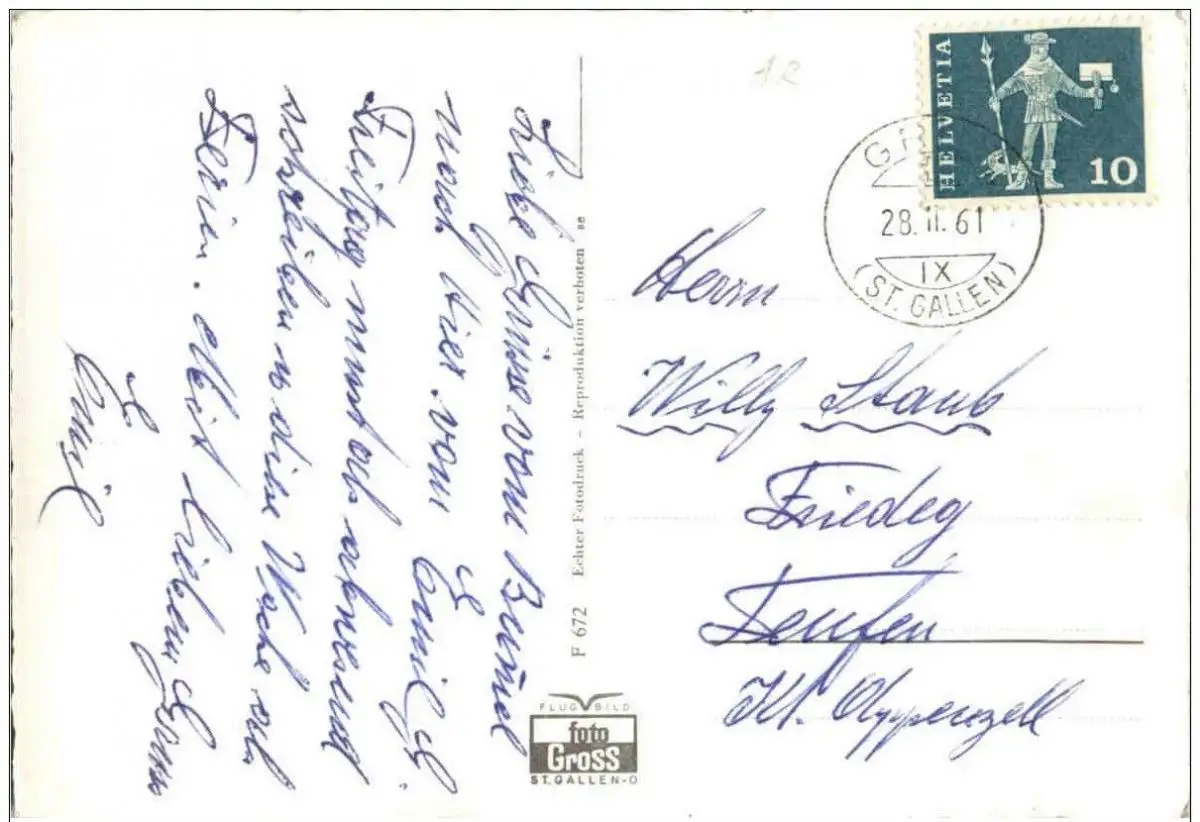 Liebe Grüsse vom Bummel
noch hier vom Emil G.
Freitag musst als abwesend
schreiben diese Woche
Ferien. Mit lieben
Emil
F 672 Echter Fotodruck – Reproduktion verboten
FLUGBILD
foto
Gross
ST. GALLEN-O
AR
HELVETIA
10
28.II.61
IX
(ST. GALLEN)
Herrn
Willy Staub
Friedeg
Teufen
Kt. Appenzell